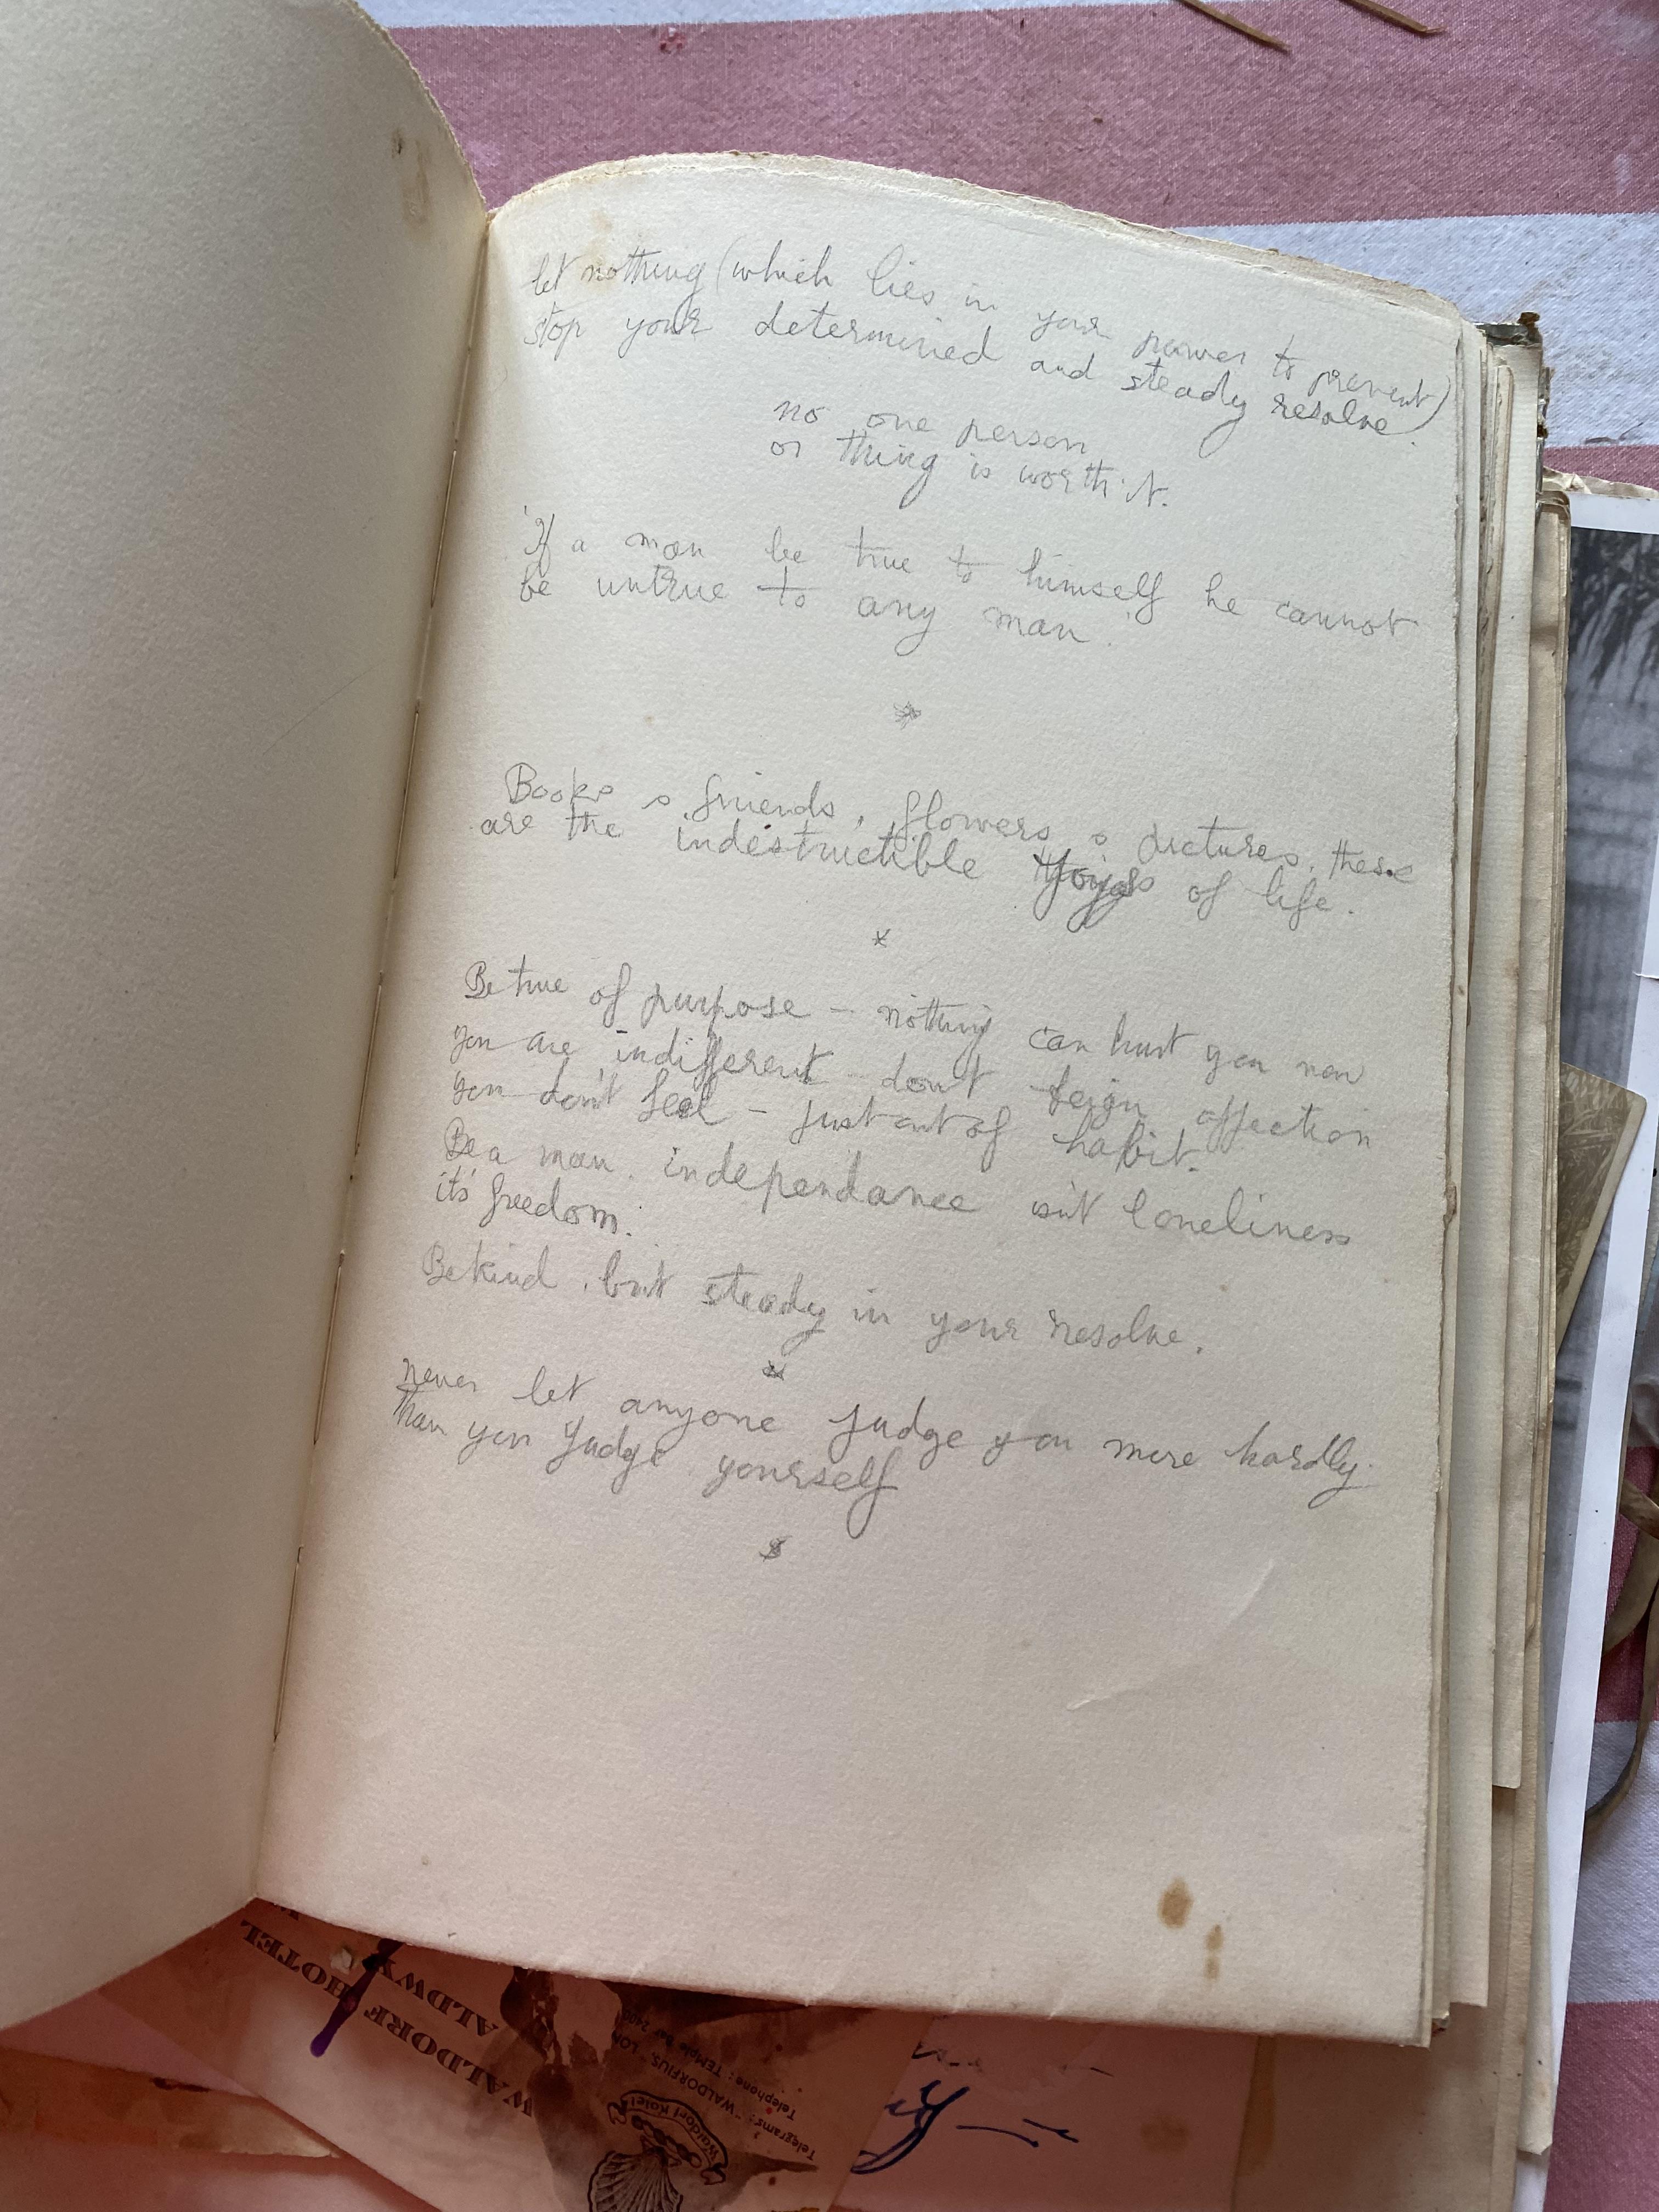 let nothing (which lies in your power to prevent)
stop your determined and steady resolve.
no one person
or thing is worth it.
'If a man be true to himself he cannot
be untrue to any man.'
*
Books, friends, flowers, pictures, these
are the indestructible joys of life.
*
Be true of purpose – nothing can hurt you now
you are indifferent – don't feign affection
you don't feel – just out of habit.
Be a man. independance isn't loneliness
it's freedom.
Be kind, but steady in your resolve.
*
never let anyone judge you more hardly
than you judge yourself
WALDORF HOTEL
ALDWY
Telegrams: "WALDORFIUS, LON
Telephone: TEMple Bar 2400
Waldorf Hotel